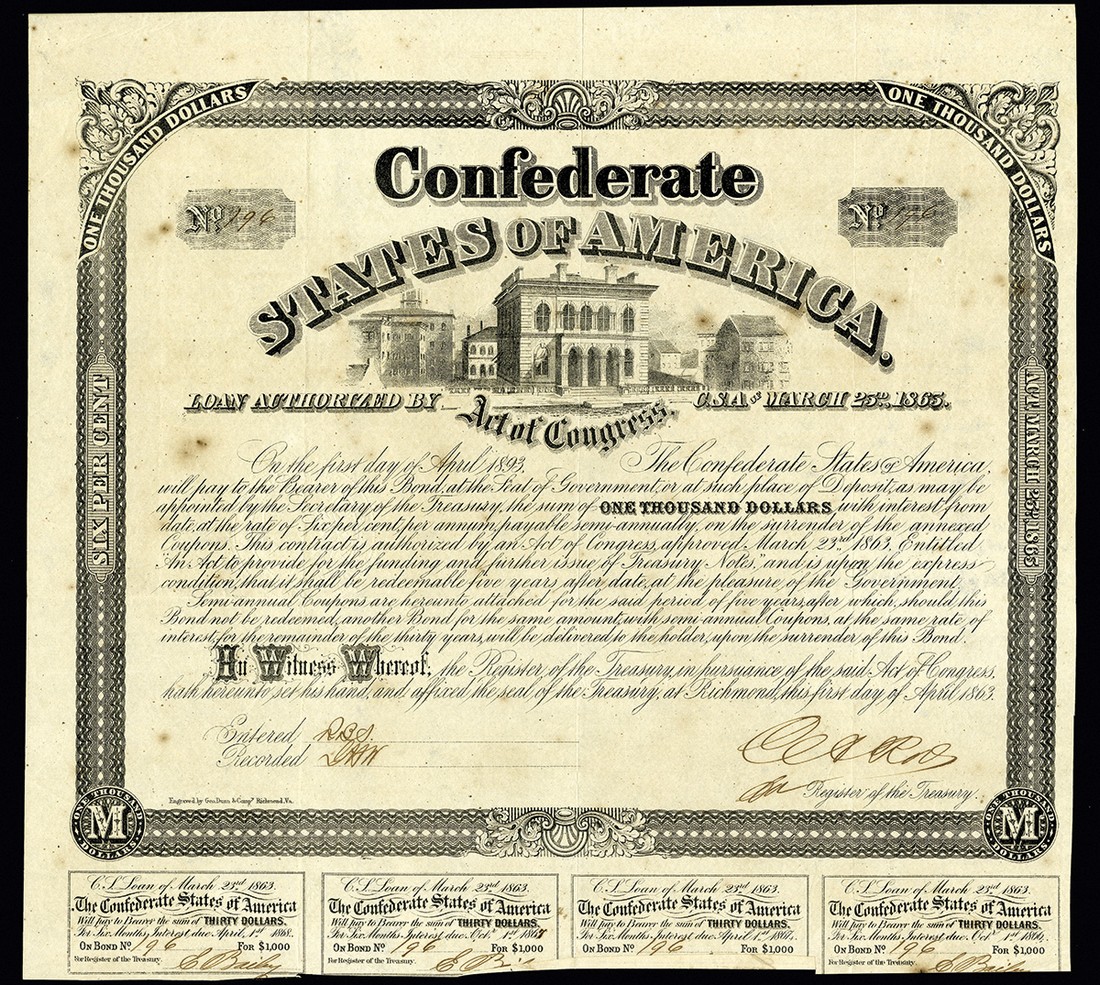 ONE THOUSAND DOLLARS
ONE THOUSAND DOLLARS
Confederate
No. 196
No. 196
STATES OF AMERICA.
LOAN AUTHORIZED BY Act of Congress, C.S.A. OF MARCH 23RD 1863.
SIX PER CENT
ACT MARCH 23RD 1863
On the first day of April 1893, The Confederate States of America,
will pay to the Bearer of this Bond, at the Seat of Government, or at such place of Deposit, as may be
appointed by the Secretary of the Treasury, the sum of ONE THOUSAND DOLLARS with interest from
date, at the rate of Six per cent, per annum, payable semi-annually, on the surrender of the annexed
Coupons. This contract is authorized by an Act of Congress, approved March 23rd 1863, Entitled
"An Act to provide for the funding and further issue of Treasury Notes," and is upon the express
condition, that it shall be redeemable five years, after date, at the pleasure of the Government.
Semi-annual Coupons are hereunto attached for the said period of five years, after which, should this
Bond not be redeemed, another Bond for the same amount, with semi-annual Coupons, at the same rate of
interest, for the remainder of the thirty years, will be delivered to the holder, upon the surrender of this Bond.
In Witness Whereof, the Register of the Treasury, in pursuance of the said Act of Congress,
hath hereunto set his hand, and affixed the seal of the Treasury, at Richmond, this first day of April, 1863.
Entered
Recorded
Register of the Treasury.
Engraved by Geo. Dunn & Compy. Richmond, Va.
ONE THOUSAND M DOLLARS
ONE THOUSAND M DOLLARS
C.S. Loan of March 23rd 1863.
The Confederate States of America
Will pay to Bearer the sum of THIRTY DOLLARS.
For Six Months, Interest due April, 1st 1868.
ON BOND No. 196 FOR $1,000
For Register of the Treasury. E Bailey
C.S. Loan of March 23rd 1863.
The Confederate States of America
Will pay to Bearer the sum of THIRTY DOLLARS.
For Six Months, Interest due Oct. 1st
ON BOND No. 196 FOR $1,000
For Register of the Treasury.
C.S. Loan of March 23rd 1863.
The Confederate States of America
Will pay to Bearer the sum of THIRTY DOLLARS.
For Six Months, Interest due April 1st
ON BOND No. 196 FOR $1,000
C.S. Loan of March 23rd 1863.
The Confederate States of America
Will pay to Bearer the sum of THIRTY DOLLARS.
For Six Months, Interest due Oct. 1st 1864.
ON BOND No. 196 FOR $1,000
For Register of the Treasury. E Bailey